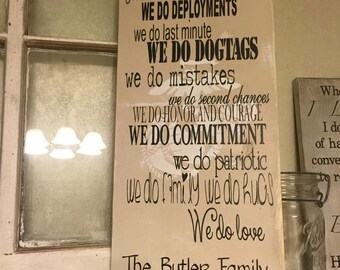 WE DO DEPLOYMENTS
we do last minute
WE DO DOGTAGS
we do mistakes
we do second chances
WE DO HONOR AND COURAGE
WE DO COMMITMENT
we do patriotic
we do family we do hugs
We do love
The Butler Family
Whe
I do
of ha
conve
to re